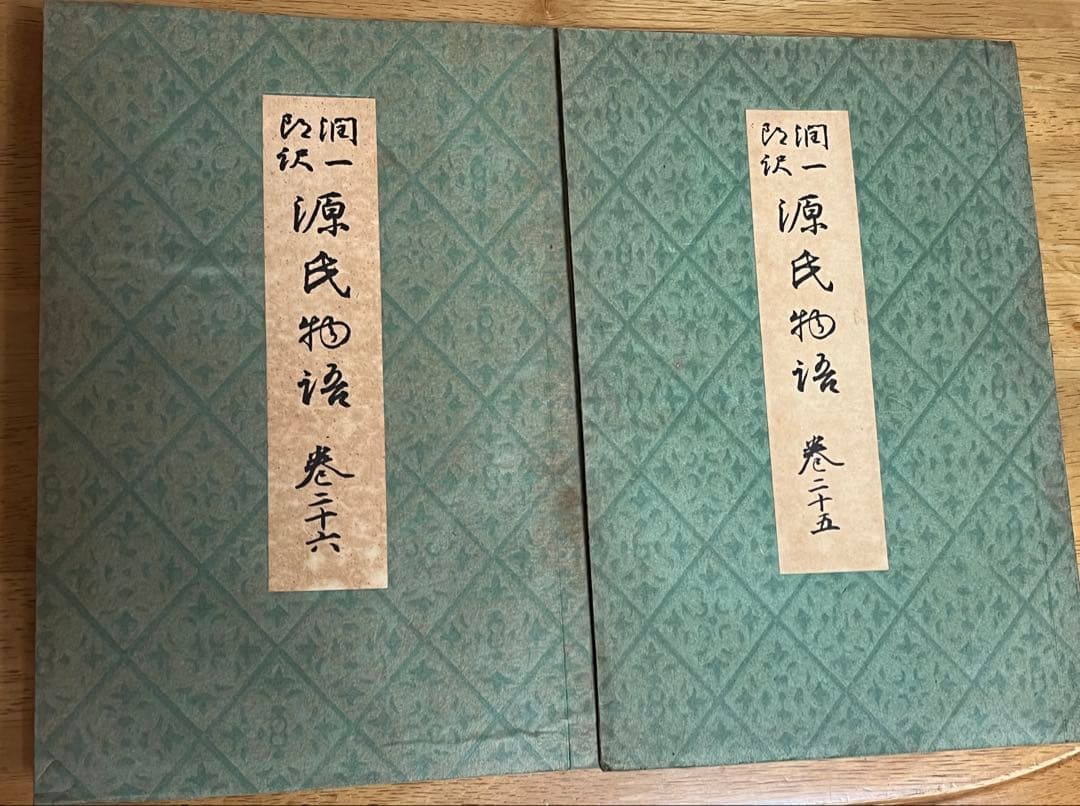 潤一
郎訳
源氏物語 巻二十五
潤一
郎訳
源氏物語 巻二十六